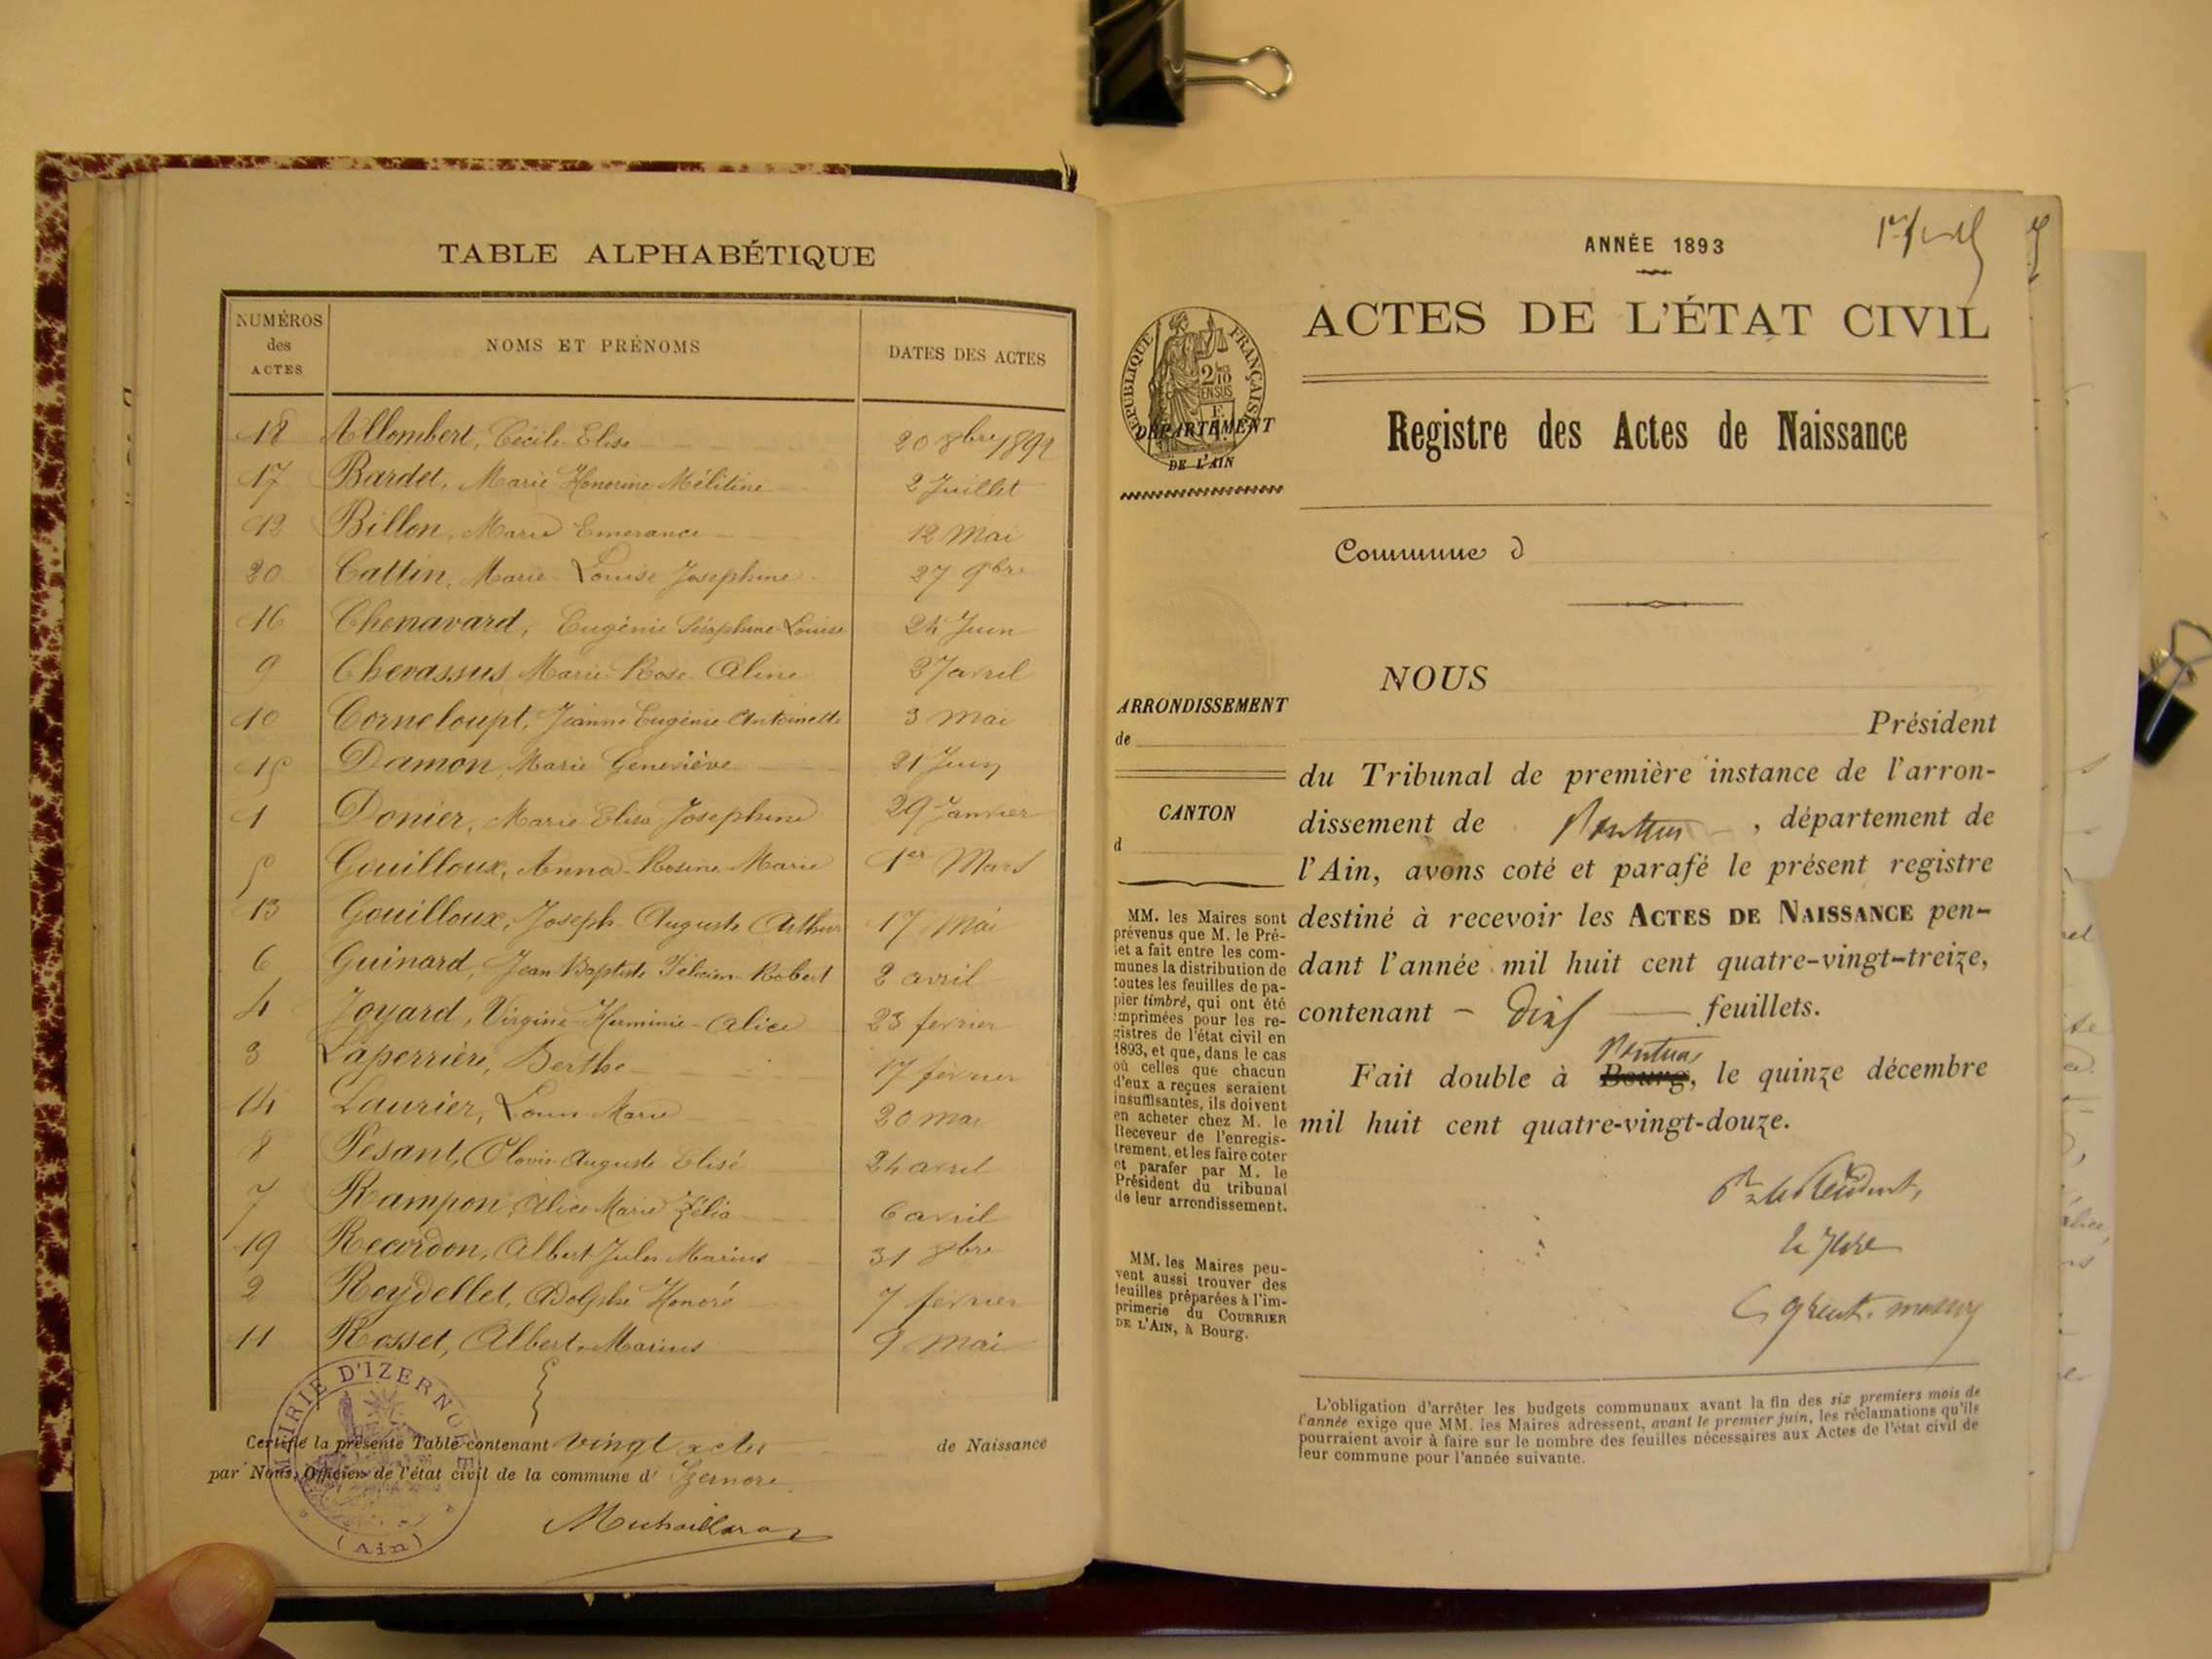 TABLE ALPHABÉTIQUE
NUMÉROS
des
ACTES
NOMS ET PRÉNOMS
DATES DES ACTES
18 Allombert, Cécile Elise 20 8bre 1892
17 Bardet, Marie Honorine Mélitine 2 Juillet
12 Billon, Marie Emerance 12 Mai
20 Cattin, Marie Louise Josephine 27 9bre
16 Chenavard, Eugénie Séraphine Louise 24 Juin
9 Chevassus Marie Rose Aline 27 avril
10 Corneloupt, Jeanne Eugénie Antoinette 3 Mai
15 Damon, Marie Geneviève 21 Juin
1 Donier, Marie Elisa Josephine 29 Janvier
5 Gouilloux, Anna Rosine Marie 1er Mars
13 Gouilloux, Joseph Auguste Arthur 17 Mai
6 Guinard, Jean Baptiste Félicien Robert 2 avril
4 Joyard, Virginie Herminie Alice 23 février
3 Laperrière, Berthe 17 février
14 Laurier, Louis Marie 20 mai
8 Pesant, Clovis Auguste Elisé 24 avril
7 Rampon, Alice Marie Zélia 6 avril
19 Recordon, Albert Jules Marius 31 8bre
2 Reydellet, Adolphe Honoré 7 février
11 Rosset, Albert Marius 9 Mai
Certifié la présente Table contenant vingt actes de Naissance
par Nous, Officier de l'état civil de la commune d' Izernore
MAIRIE D'IZERNORE
(Ain)
ANNÉE 1893
ACTES DE L'ÉTAT CIVIL
RÉPUBLIQUE FRANÇAISE
2/10
EN SUS
DÉPARTEMENT
DE L'AIN
Registre des Actes de Naissance
Commune d
NOUS
Président
du Tribunal de première instance de l'arron-
dissement de Nantua, département de
l'Ain, avons coté et parafé le présent registre
destiné à recevoir les ACTES DE NAISSANCE pen-
dant l'année mil huit cent quatre-vingt-treize,
contenant – dix — feuillets.
Nantua
Fait double à Bourg, le quinze décembre
mil huit cent quatre-vingt-douze.
Pr le Président,
le Juge
ARRONDISSEMENT
de
CANTON
d
MM. les Maires sont
prévenus que M. le Pré-
fet a fait entre les com-
munes la distribution de
toutes les feuilles de pa-
pier timbré, qui ont été
imprimées pour les re-
gistres de l'état civil en
1893, et que, dans le cas
où celles que chacun
d'eux a reçues seraient
insuffisantes, ils doivent
en acheter chez M. le
Receveur de l'enregis-
trement, et les faire coter
et parafer par M. le
Président du tribunal
de leur arrondissement.
MM. les Maires peu-
vent aussi trouver des
feuilles préparées à l'im-
primerie du COURRIER
DE L'AIN, à Bourg.
L'obligation d'arrêter les budgets communaux avant la fin des six premiers mois de
l'année exige que MM. les Maires adressent, avant le premier juin, les réclamations qu'ils
pourraient avoir à faire sur le nombre des feuilles nécessaires aux Actes de l'état civil de
leur commune pour l'année suivante.